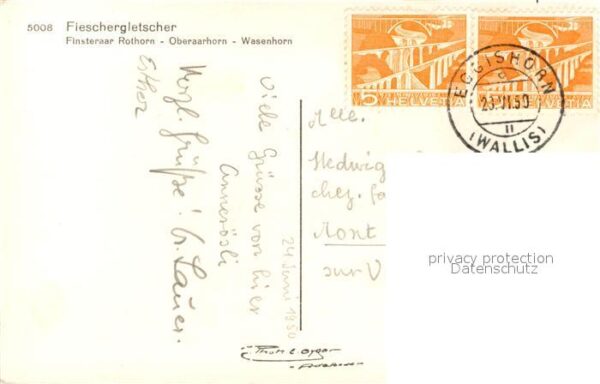 5008 Fieschergletscher
Finsteraar Rothorn - Oberaarhorn - Wasenhorn
5 HELVETIA
HELVETIA
EGGISHORN
23.VI.50
(WALLIS)
Herzl. Grüße!
Esther
Viele Grüsse von hier
Annerösli
24 Juni 1950
Mlle.
Hedwig
chez. fa
Mont
sur V
privacy protection
Datenschutz